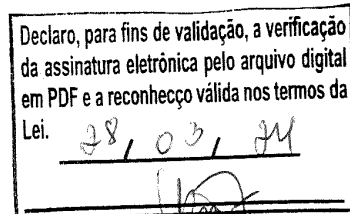 Declaro, para fins de validação, a verificação
da assinatura eletrônica pelo arquivo digital
em PDF e a reconhecço válida nos termos da
Lei. 28, 03, 24